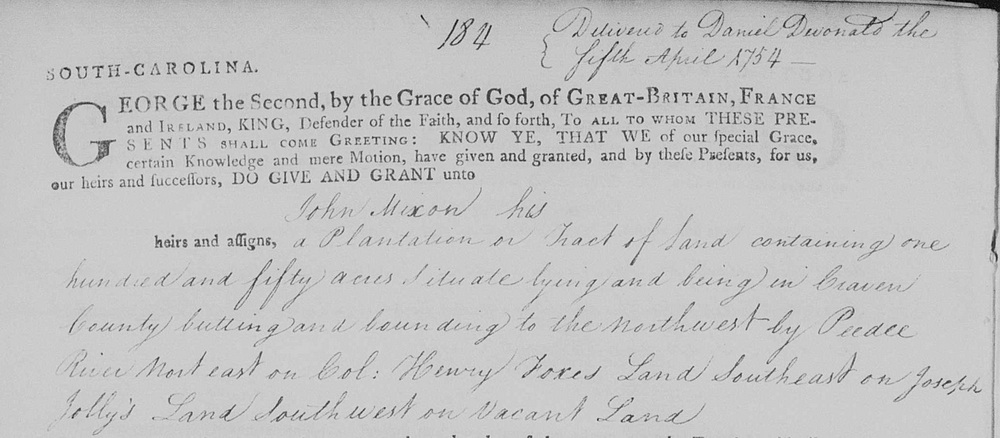 184
Delivered to Daniel Devonald the
fifth April 1754 —
SOUTH-CAROLINA.
GEORGE the Second, by the Grace of God, of GREAT-BRITAIN, FRANCE
and IRELAND, KING, Defender of the Faith, and ſo forth, TO ALL TO WHOM THESE PRE-
SENTS SHALL COME GREETING: KNOW YE, THAT WE of our ſpecial Grace,
certain Knowledge and mere Motion, have given and granted, and by theſe Preſents, for us,
our heirs and ſucceſſors, DO GIVE AND GRANT unto
John Mixon his
heirs and aſſigns, a Plantation or Tract of Land containing one
hundred and fifty acres Situate lying and being in Craven
County butting and bounding to the Northwest by Peedee
River Nort east on Col: Henry Foxes Land Southeast on Joseph
Jolly's Land Southwest on Vacant Land